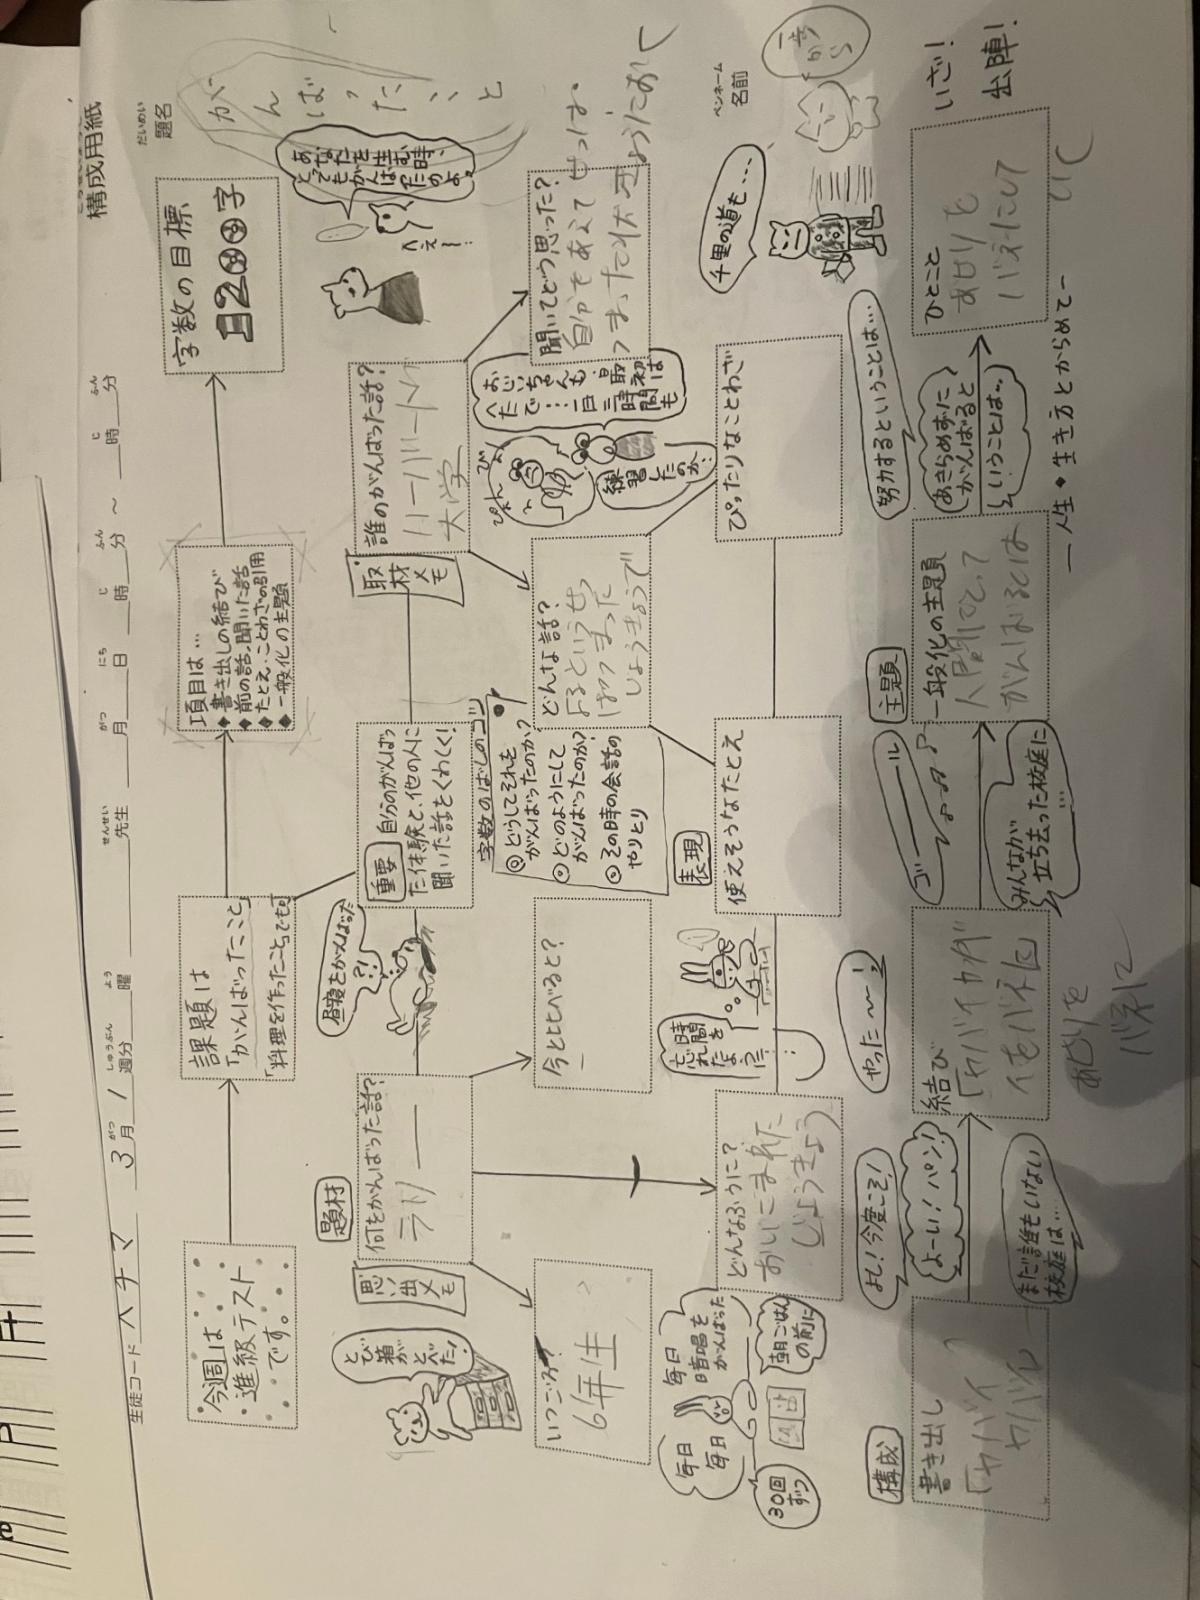 構成用紙
生徒コード ハチマ 3月1週分 曜 先生 月 日 時 分 ～ 時 分
がつ しゅうぶん よう せんせい がつ にち じ ふん じ ふん
だいめい
題名
がんばったこと
今週は
進級テスト
です。
課題は
「がんばったこと」
「料理を作ったこと」でも可
項目は…
◆書き出しの結び
◆前の話、聞いた話
◆たとえ・ことわざの引用
◆一般化の主題
字数の目標
月200字
題材
思い出メモ
とび箱がとべた!
何をがんばった話?
昼寝をがんばった
?!
重要
自分のがんばっ
た体験と、他の人に
聞いた話をくわしく!
取材メモ
誰のがんばった話?
ハーバード
大学
へえ~!
あなたを生む時、
とてもがんばったのよ。
いつごろ?
6年生
今とくらべると?
字数のばしのコツ
どうしてそれを
がんばったのか?
どのようにして
がんばったのか?
その時の会話の
やりとり
どんな話?
聞いてどう思った?
自分をあえて
おじいちゃんも最初は
へたで…一日三時間も
練習したのか!
毎日
毎日
毎日
暗唱を
がんばった
朝ごはん
の前に
30回
ずつ
どんなふうに?
おいこまれた
じょうきょう
時間を
忘れたように!
表現
使えそうなたとえ
ぴったりなことわざ
千里の道も…
ペンネーム
名前
一歩から
構成
書き出し
よし!今度こそ!
よーい!パン!
まだ誰もいない
校庭は…
結び
やった~~!
ゴーール
みんなが
立ち去った校庭に
…
主題
一般化の主題
人間にとって
がんばるとは
努力するということは…
あきらめずに
がんばると
いうことは…
ー人生・生き方とからめてー
ひとこと
いざ!
出陣!